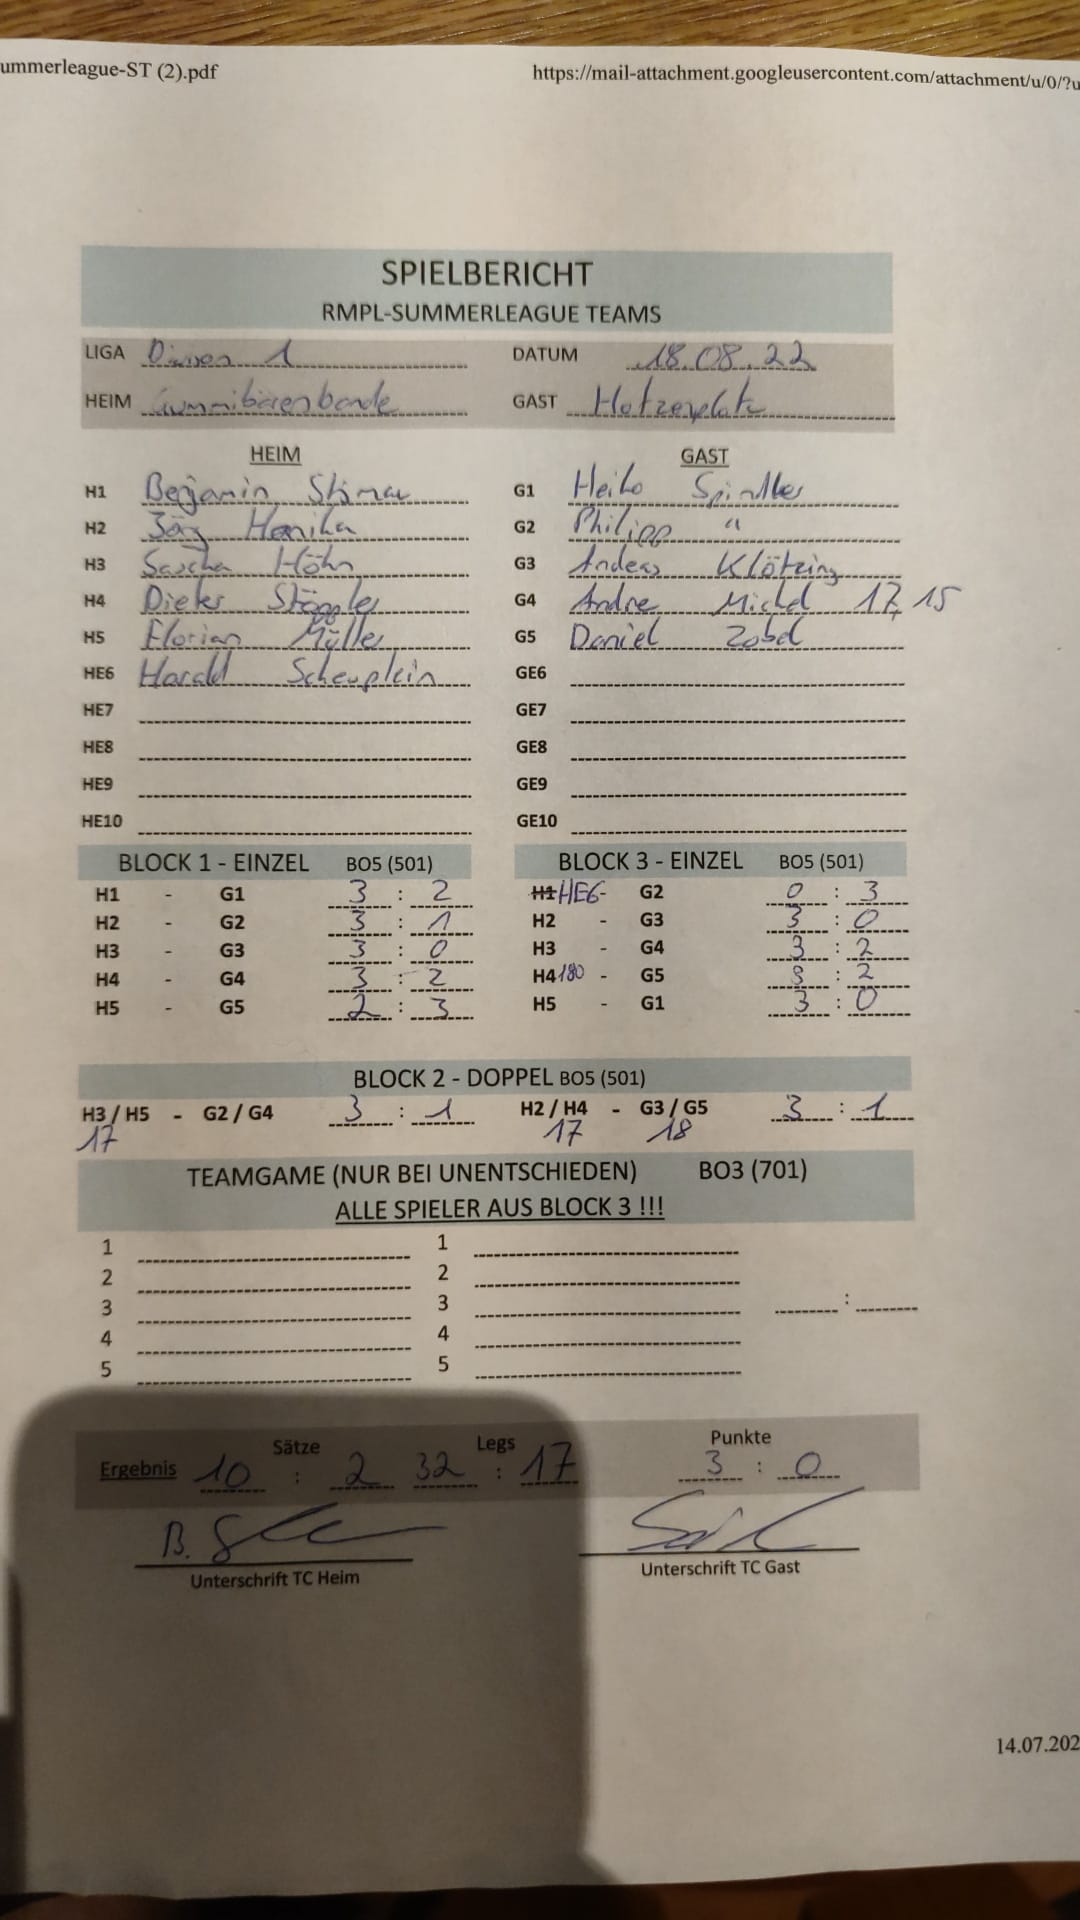 ummerleague-ST (2).pdf https://mail-attachment.googleusercontent.com/attachment/u/0/?u
SPIELBERICHT
RMPL-SUMMERLEAGUE TEAMS
LIGA 1 DATUM 18.08.22
HEIM Gummibärenbande GAST Hotzenplotz
HEIM GAST
H1 Benjamin G1 Heiko Spindler
H2 Jörg Honika G2 Philipp "
H3 Sascha Höhn G3 Andeas Klötzing
H4 Dieter Stöggler G4 Andre Michel 17, 15
H5 Florian Müller G5 Daniel Zobel
HE6 Harald Scheuplein GE6
HE7 GE7
HE8 GE8
HE9 GE9
HE10 GE10
BLOCK 1 - EINZEL BO5 (501) BLOCK 3 - EINZEL BO5 (501)
H1 - G1 3 : 2 H1 HE6 - G2 0 : 3
H2 - G2 3 : 1 H2 - G3 3 : 0
H3 - G3 3 : 0 H3 - G4 3 : 2
H4 - G4 3 : 2 H4 180 - G5 3 : 2
H5 - G5 2 : 3 H5 - G1 3 : 0
BLOCK 2 - DOPPEL BO5 (501)
H3 / H5 - G2 / G4 3 : 1 H2 / H4 - G3 / G5 3 : 1
17 17 18
TEAMGAME (NUR BEI UNENTSCHIEDEN) BO3 (701)
ALLE SPIELER AUS BLOCK 3 !!!
1 1
2 2
3 3 :
4 4
5 5
Sätze Legs Punkte
Ergebnis 10 : 2 32 : 17 3 : 0
B.
Unterschrift TC Heim Unterschrift TC Gast
14.07.202